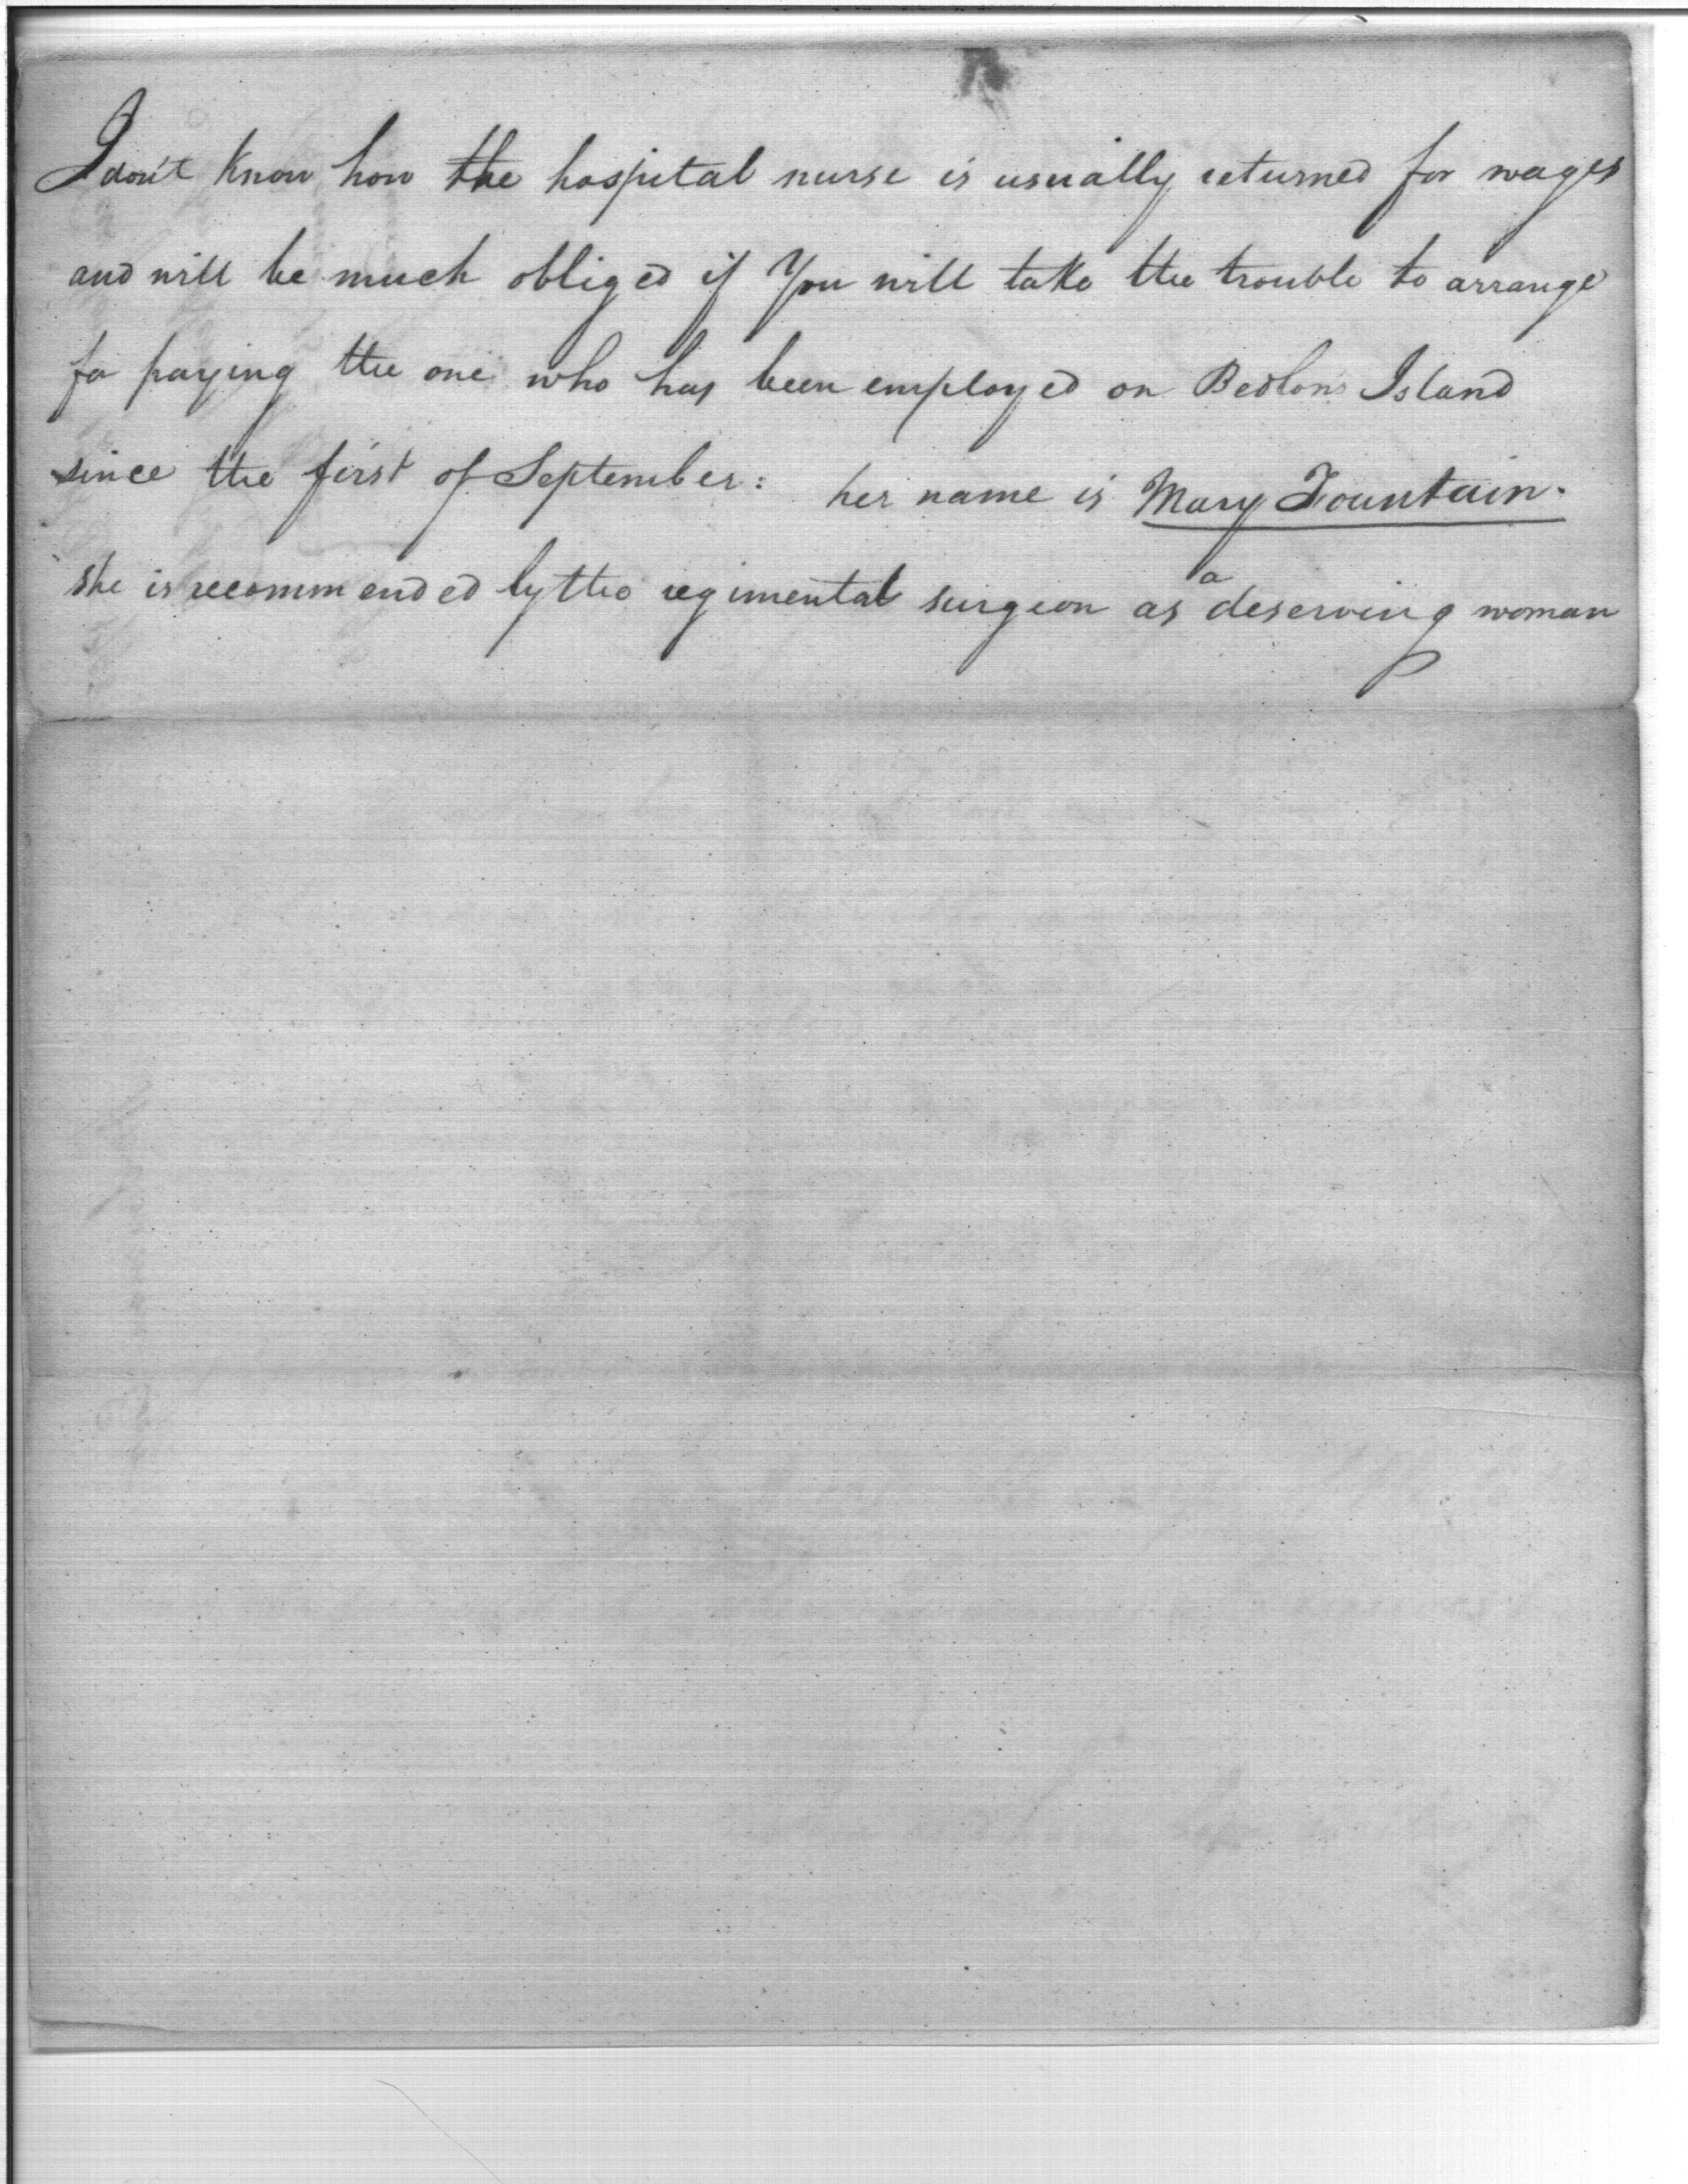 I don't know how the hospital nurse is usually returned for wages
and will be much obliged if You will take the trouble to arrange
fo paying the one who has been employed on Bedlons Island
since the first of September: her name is Mary Fountain.
she is recommended by the regimental surgeon as a deserving woman